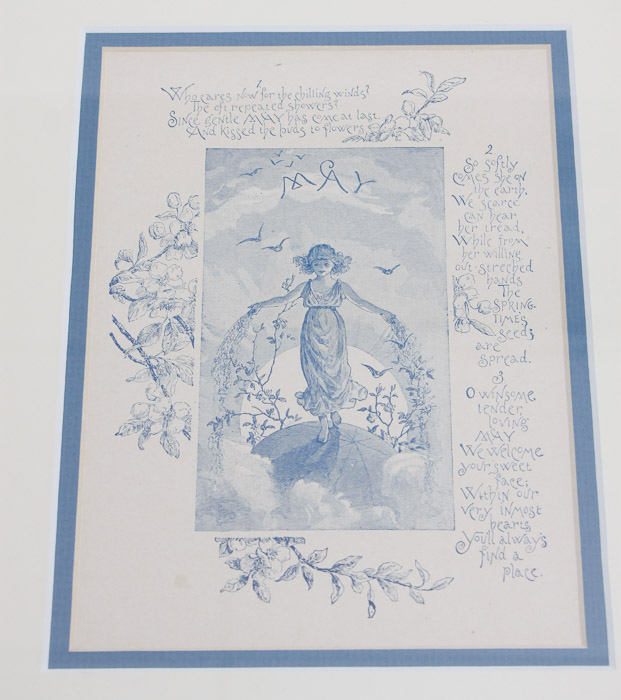 1
Who cares now for the chilling winds?
The oft repeated showers?
Since gentle MAY has come at last
And kissed the buds to flowers.
MAY
2
So softly
comes she on
the earth,
We scarce
can hear
her tread,
While from
her willing
out-streched
hands
The
SPRING-
TIME'S
seeds
are
spread.
3
O winsome
tender
loving
MAY
We welcome
your sweet
face;
Within our
very inmost
hearts
You'll always
find a
place.